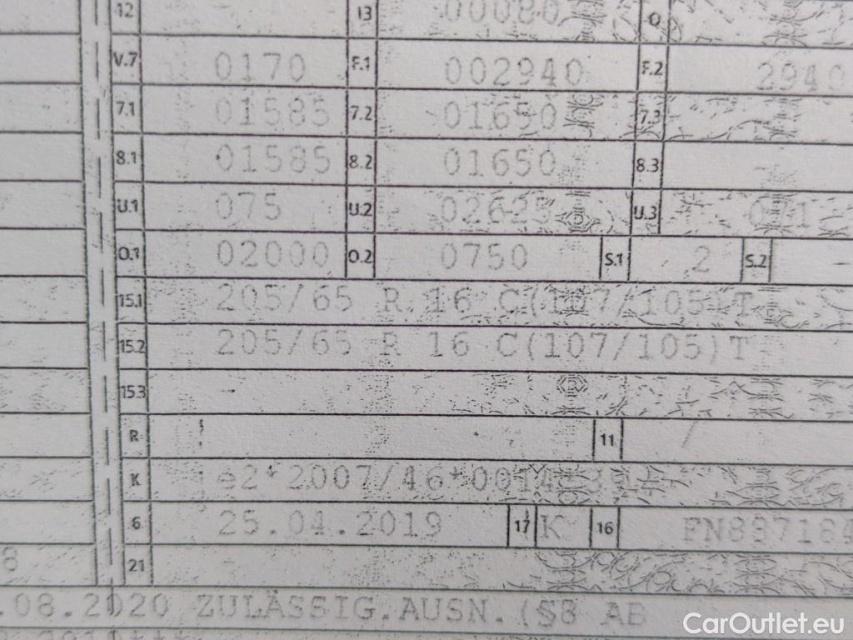 12 13 00080 Q
V.7 0170 F.1 002940 F.2 2940
7.1 01585 7.2 01650 7.3
8.1 01585 8.2 01650 8.3
U.1 075 U.2 02625 U.3
O.1 02000 O.2 0750 S.1 2 S.2 -
15.1 205/65 R 16 C(107/105)T
15.2 205/65 R 16 C(107/105)T
15.3 -
R 11 /
K e2*2007/46*0014
6 25.04.2019 17 K 16 FN897184
8 21
.08.2020 ZULÄSSIG.AUSN.(§8 AB
CarOutlet.eu